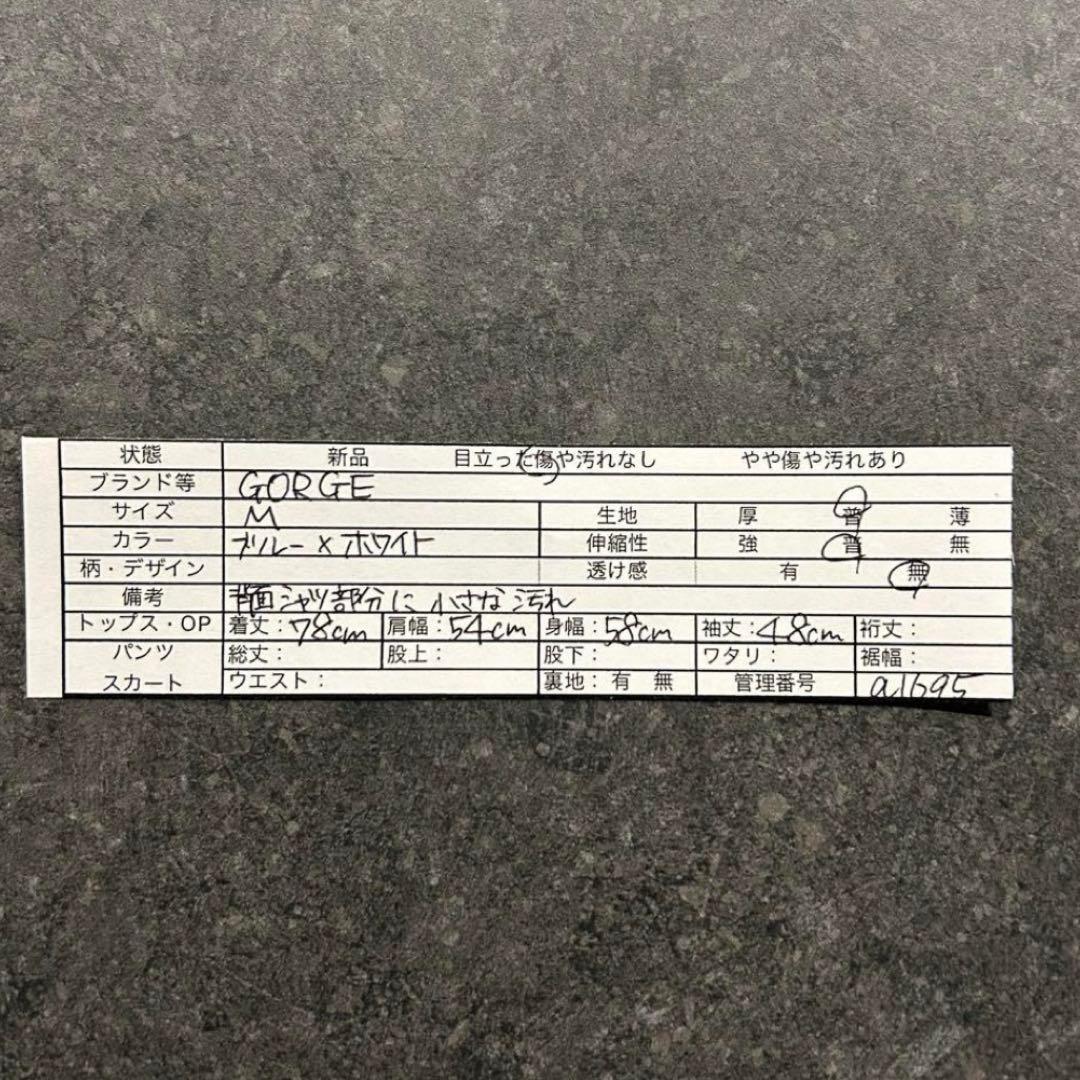 状態 新品 目立った傷や汚れなし やや傷や汚れあり
ブランド等 GORGE
サイズ M 生地 厚 普 薄
カラー ブルー×ホワイト 伸縮性 強 普 無
柄・デザイン 透け感 有 無
備考 背面シャツ部分に小さな汚れ
トップス・OP 着丈：78cm 肩幅：54cm 身幅：58cm 袖丈：48cm 裄丈：
パンツ 総丈： 股上： 股下： ワタリ： 裾幅：
スカート ウエスト： 裏地： 有 無 管理番号 a1695